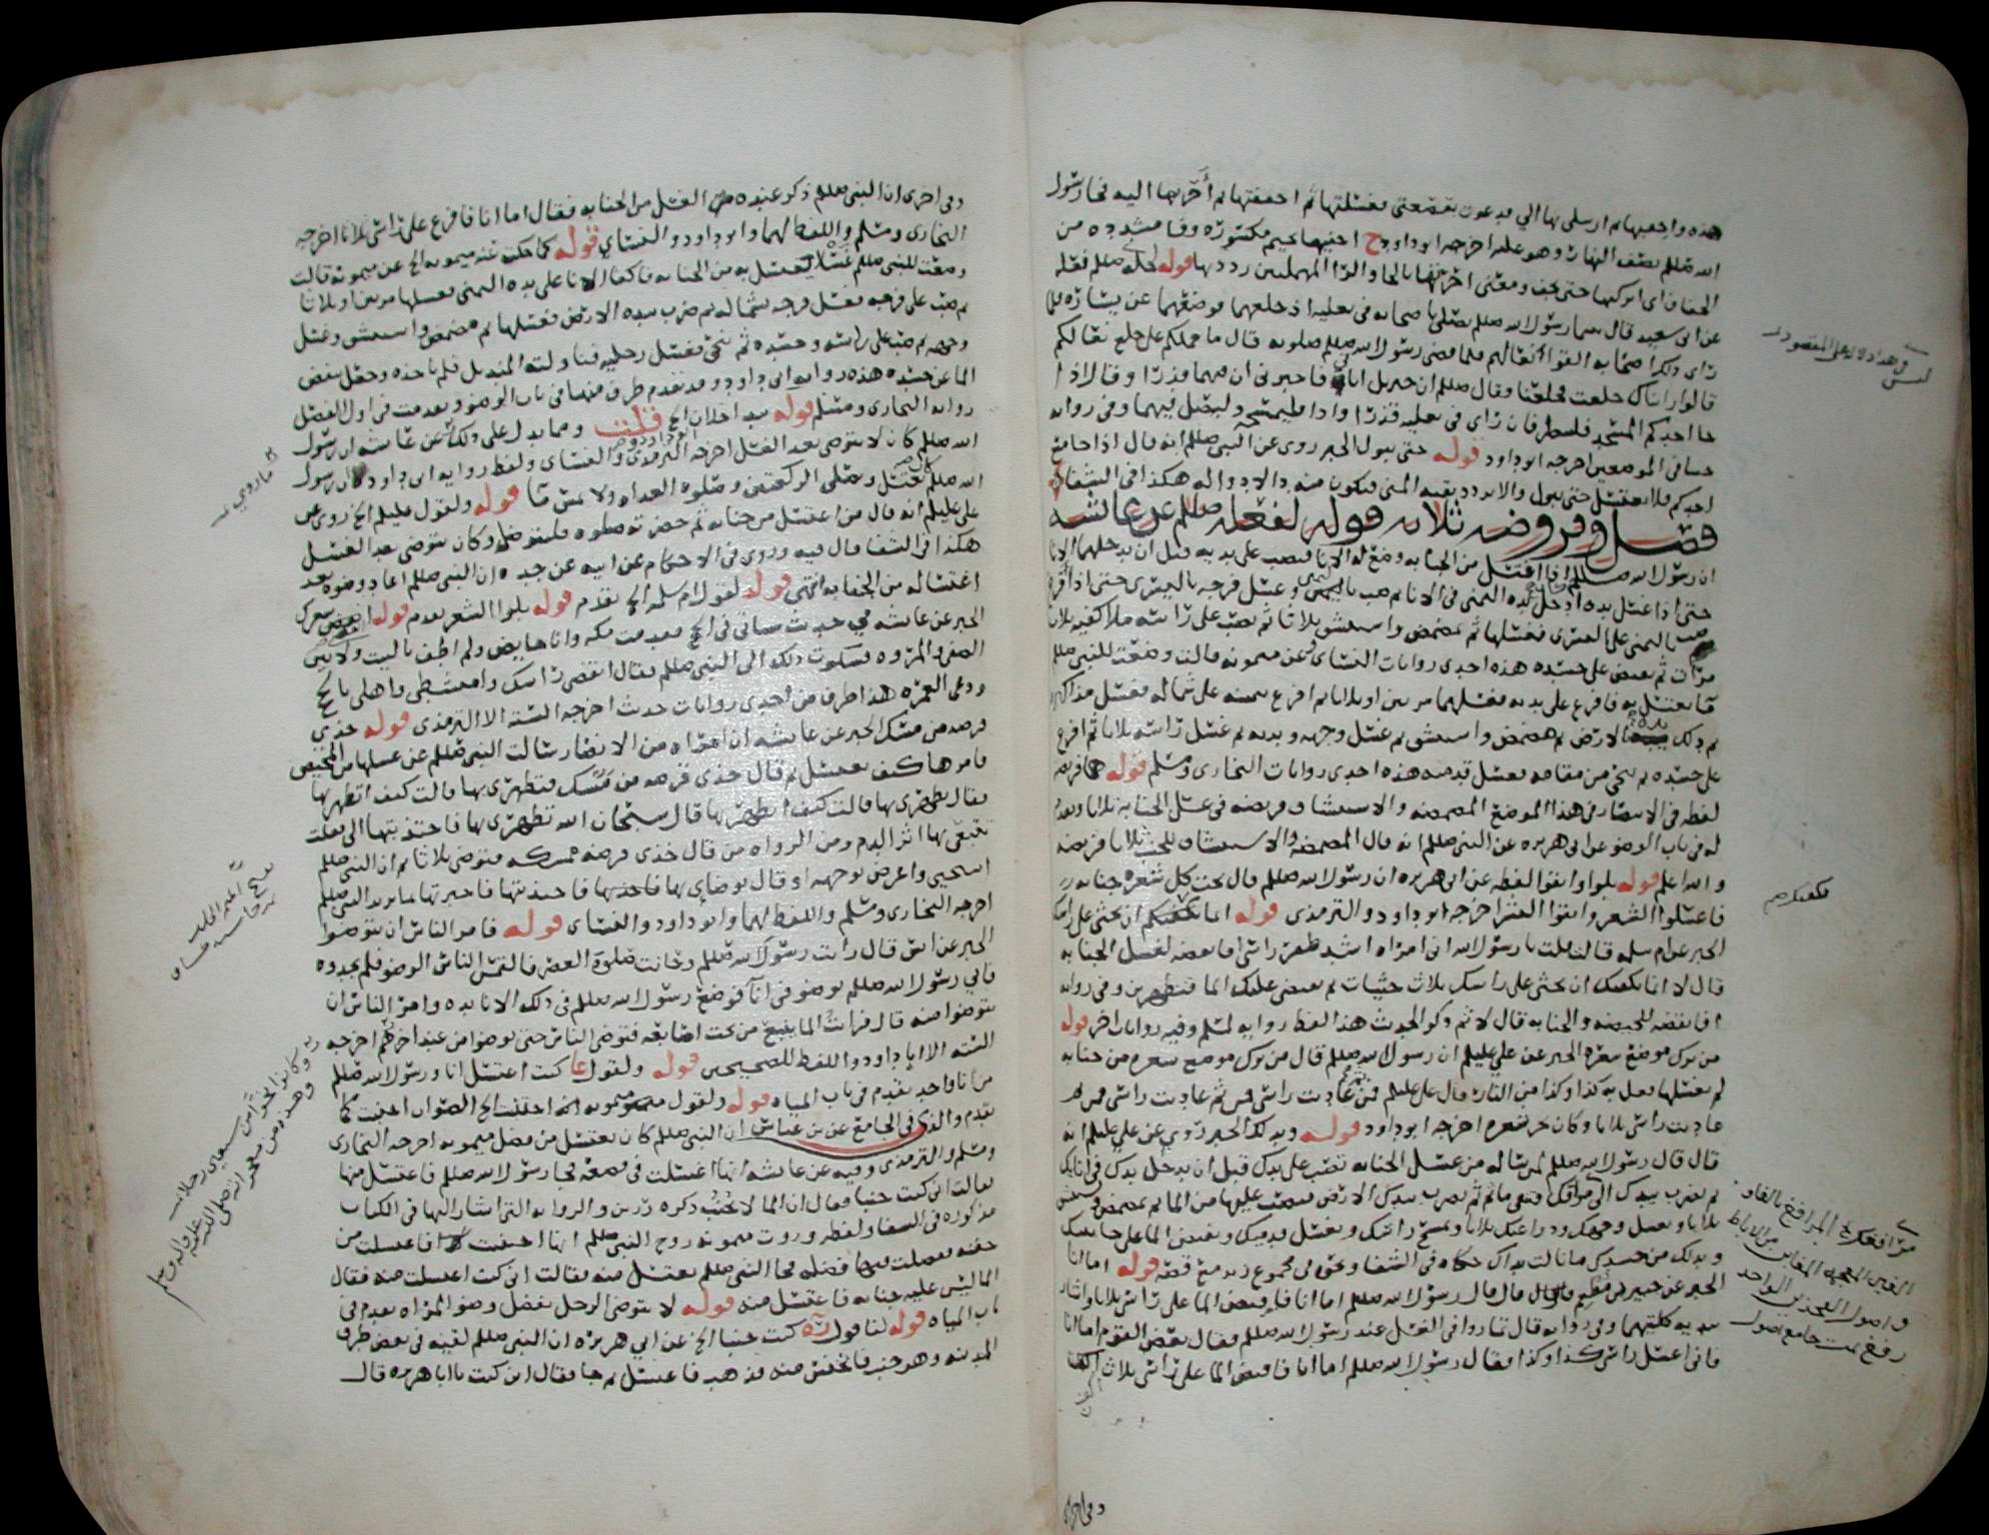 هذه واجفيها ثم ارسلى بها الي فدعوت بقصعتي فغسلتها ثم اجففتها ثم أخرجها اليه فجا رسول
الله صللم نصف النهار وهو عليه اخرجه ابو داود ح اجفيها بجيم مكسوره وفا مشدده من
الجفاف اي اتركيها حتى تجف ومعنى اخرجتها بالحا والرا المهملتين رددتها قوله لخلعه صللم نعله
عن ابي سعيد قال بينما رسول الله صللم يصلي باصحابه في نعليه اذ خلعهما فوضعهما عن يساره فلما
راى ذلك اصحابه القوا نعالهم فلما قضى رسول الله صللم صلوته قال ما حملكم على خلع نعالكم
قالوا رايناك خلعت فخلعنا وقال صللم ان جبريل اتاني فاخبرني ان فيهما قذرا وقال اذا
جا احدكم المسجد فلينظر فان راى في نعليه قذرا او اذا فليمسحه وليصل فيهما وفي روايه
خبثا في الموضعين اخرجه ابو داود قوله حتى يبول الخبر روي عن النبي صللم انه قال اذا جامع
احدكم فلا يغتسل حتى يبول والا تردد بقيه المني فيكون منه دا لا دوا له هكذا في الشفا
فصل وفروضه ثلاثه قوله لفعله صللم عن عائشه
ان رسول الله صللم كان اذا اغتسل من الجنابه وضع له الانا فيصب على يديه قبل ان يدخلهما الانا
حتى اذا غسل يديه ادخل يده اليمنى في الانا ثم صب باليمنى وغسل فرجه باليسرى حتى اذا فرغ
صب باليمنى على اليسرى فغسلها ثم تمضمض واستنشق ثلاثا ثم يصب على راسه ملا كفيه ثلاث
مرات ثم يفيض على جسده هذه احدى روايات النساي وعن ميمونه قالت وضعت للنبي صللم
ما يغتسل به فافرغ على يديه فغسلهما مرتين او ثلاثا ثم افرغ بيمينه على شماله فغسل مذاكيره
ثم دلك يده بالارض ثم مضمض واستنشق ثم غسل وجهه ويديه ثم غسل راسه ثلاثا ثم افرغ
على جسده ثم تنحى من مقامه فغسل قدميه هذه احدى روايات البخارى ومسلم قوله هما فريضه
لفظه في الانتصار في هذا الموضع المضمضه والاستنشاق فريضه في غسل الجنابه ثلاثا وتقدم
له في باب الوضو عن ابي هريره عن النبي صللم انه قال المضمضه والاستنشاق للجنب ثلاثا فريضه
والله اعلم قوله بلوا وانقوا لفظه عن ابي هريره ان رسول الله صللم قال تحت كل شعره جنابه
فاغسلوا الشعر وانقوا البشر اخرجه ابو داود والترمذى قوله انما يكفيكم ان تحثي على راسك
الخبر عن ام سلمه قالت قلت يا رسول الله اني امراه اشد ظفر راسي افانقضه لغسل الجنابه
قال لا انما يكفيك ان تحثي على راسك ثلاث حثيات ثم تفيضي عليك الما فتطهرين وفي روايه
افانقضه للحيضه والجنابه قال لا ثم ذكر الحديث هذا لفظ روايه لمسلم وفيه روايات اخر قوله
من ترك موضع شعره الخبر عن علي عليلم ان رسول الله صللم قال من ترك موضع شعره من جنابه
لم يغسلها فعل به كذا وكذا من النار قال علي عليلم فمن ثم عاديت راسي فمن ثم عاديت راسي فمن ثم
عاديت راسي ثلاثا وكان يجز شعره اخرجه ابو داود قوله وبدلك الخبر روي عن علي عليلم انه
قال قال رسول الله صللم لمن ساله عن غسل الجنابه تصب على يدك قبل ان تدخل يدك في انائك
ثم تضرب بيدك الى مرافقك فتنقي ما ثم ثم تضرب بيدك الارض فتصب عليها من الما ثم تمضمض وتستنشق
ثلاثا وتغسل وجهك وذراعيك ثلاثا وتمسح راسك وتغسل قدميك وتفيض الما على جانبيك
وتدلك من جسدك ما نالت يداك حكاه في الشفا ونحوه في مجموع زيد مع قصه قوله اما انا
الخبر عن جبير بن مطعم قال قال رسول الله صللم اما انا فافيض الما على راسي ثلاثا واشار
بيديه كلتيهما وفي روايه قال تماروا في الغسل عند رسول الله صللم فقال بعض القوم اما انا
فاني اغسل راسي كذا وكذا فقال رسول الله صللم اما انا فافيض الما على راسي ثلاث اكف
ليس في هذا دلاله على المقصود
يكفيك
مرافغك المرافغ بالفاء
الغين المعجمه المغابن من الاباط
واصول الفخذين الواحد
رفغ تمت جامع اصول
وفي اخرى
وفي اخرى ان النبي صللم ذكر عنده الغسل من الجنابه فقال اما انا فافرغ على راسي ثلاثا اخرجه
البخارى ومسلم واللفظ لهما وابو داود والنساي قوله كما حكت عنه ميمونه الخ عن ميمونه قالت
وضعت للنبي صللم غسلا يغتسل به من الجنابه فاكفا الانا على يده اليمنى فغسلها مرتين او ثلاثا
ثم صب على فرجه فغسل فرجه بشماله ثم ضرب بيده الارض فغسلها ثم مضمض واستنشق وغسل
وجهه ثم صب على راسه وجسده ثم تنحى فغسل رجليه فناولته المنديل فلم ياخذه وجعل ينفض
الما عن جسده هذه روايه ابي داود وقد تقدم طرف منها في باب الوضو وتقدمت في اول الفصل
روايه البخارى ومسلم قوله بعد اخلان الخ قلت ومما يدل على ذلك عن عائشه ان رسول
الله صللم كان لا يتوضى بعد الغسل اخرجه الترمذى والنساى ولفظ روايه ابي داود كان رسول
الله صللم يغتسل ويصلى الركعتين وصلوه الغداه ولا يمس ما قوله ولقول عليلم الخ روي عن
علي عليلم انه قال من اغتسل من جنابه ثم حضرته صلوه فليتوضا وكان يتوضى بعد الغسل
هكذا في الشفا قال فيه وروى في الاحكام عن ابيه عن جده ان النبي صللم اعاد وضوه بعد
اغتساله من الجنابه انتهى قوله لقول ام سلمه الخ تقدم قوله بلوا الشعر تقدم قوله انقضي شعرك
الخبر عن عائشه في حديث سياتي في الحج فقدمت مكه وانا حايض ولم اطف بالبيت ولا بين
الصفا والمروه فشكوت ذلك الى النبي صللم فقال انقضى راسك وامتشطي واهلى بالحج
ودعي العمره هذا طرف من احدى روايات حديث اخرجه السته الا الترمذى قوله خذى
فرصه من مسك الخبر عن عايشه ان امراه من الانصار سالت النبي صللم عن غسلها من المحيض
فامرها كيف تغتسل ثم قال خذى فرصه من مسك فتطهرى بها قالت كيف اتطهر بها
فقال تطهري بها قالت كيف اتطهر بها قال سبحان الله تطهرى بها فاجتذبتها الي فقلت
تتبعي بها اثر الدم ومن الرواه من قال خذى فرصه ممسكه فتوضى ثلاثا ثم ان النبي صللم
استحيى واعرض بوجهه او قال توضاي بها فاخذتها فاجتذبتها فاخبرتها بما يريد النبي صللم
اخرجه البخارى ومسلم واللفظ لهما وابو داود والنساى قوله فامر الناس ان يتوضوا
الخبر عن انس قال رأيت رسول الله صللم وحانت صلوة العصر فالتمس الناس الوضو فلم يجدوه
فاتي رسول الله صللم بوضو في انا فوضع رسول الله صللم في ذلك الانا يده وامر الناس ان
يتوضوا منه قال فرايت الما ينبع من تحت اصابعه فتوضى الناس حتى توضوا من عند اخرهم اخرجه
السته الا ابا داود واللفظ للصحيحين قوله ولقول عا كنت اغتسل انا ورسول الله صللم
من انا واحد تقدم في باب المياه قوله ولقول ميمونه انه اجتنبت الخ الصواب اجنبت كما
تقدم والذى في الجامع عن بن عباس ان النبي صللم كان يغتسل من فضل ميمونه اخرجه البخارى
ومسلم والترمذى وفيه عن عائشه انها اغتسلت في قصعه فجا رسول الله صللم فاغتسل منها
فقالت اني كنت جنبا فقال ان الما لا يجنب ذكره رزين والروايه التي اشار اليها في الكتاب
مذكوره في الشفا ولفظه وروت ميمونه زوج النبي صللم انها اجنبت فاغتسلت من
جفنه ففضلت فيها فضله فجا النبي صللم يغتسل منه فقالت اني كنت اغتسلت منه فقال
الما ليس عليه جنابه فاغتسل منه قوله لا يتوضى الرجل بفضل وضو المراه تقدم في
باب المياه قوله لنا قول ره كنت جنبا الخ عن ابي هريره ان النبي صللم لقيه في بعض طرق
المدينه وهو جنب فانخنس منه فذهب فاغتسل ثم جا فقال اين كنت يا ابا هريره قال